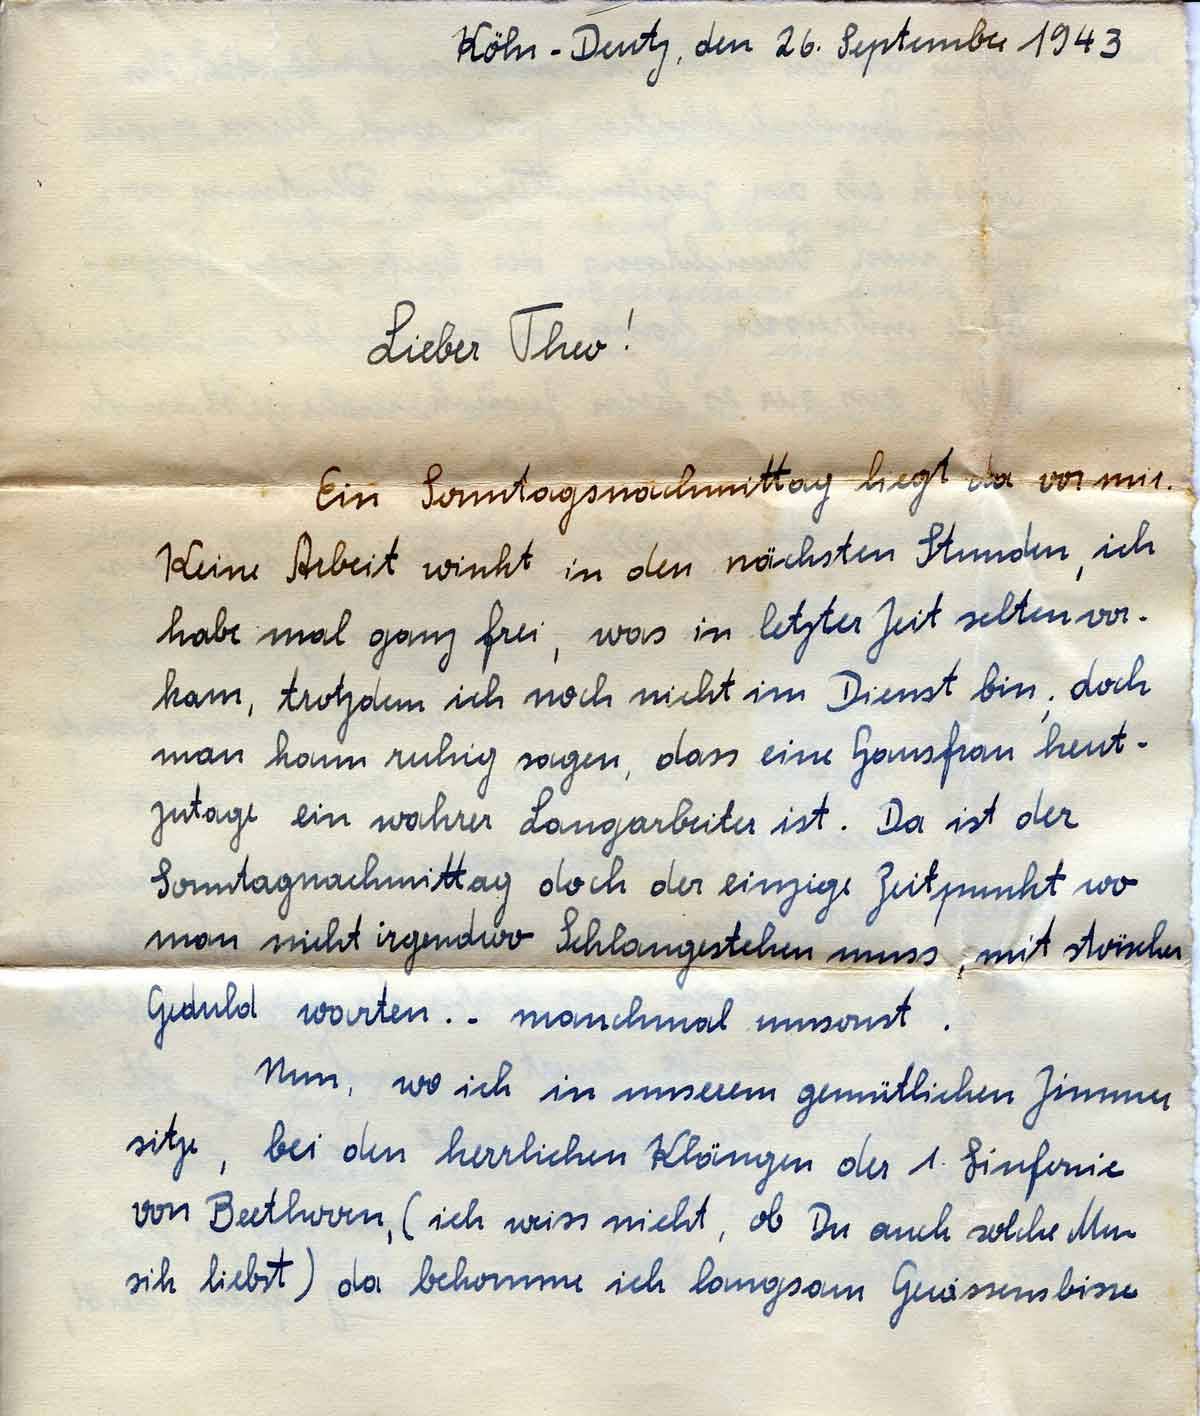 Köln - Deutz, den 26. September 1943
Lieber Theo!
Ein Sonntagsnachmittag liegt da vor mir.
Keine Arbeit winkt in den nächsten Stunden, ich
habe mal ganz frei, was in letzter Zeit selten vor-
kam, trotzdem ich noch nicht im Dienst bin, doch
man kann ruhig sagen, dass eine Hausfrau heut-
zutage ein wahrer Langarbeiter ist. Da ist der
Sonntagnachmittag doch der einzige Zeitpunkt wo
man nicht irgendwo Schlangestehen muss, mit stoischer
Geduld warten.. manchmal umsonst.
Nun, wo ich in unserem gemütlichen Zimmer
sitze, bei den herrlichen Klängen der 1. Sinfonie
von Beethoven, (ich weiss nicht, ob Du auch solche Mu-
sik liebst) da bekomme ich langsam Gewissensbisse